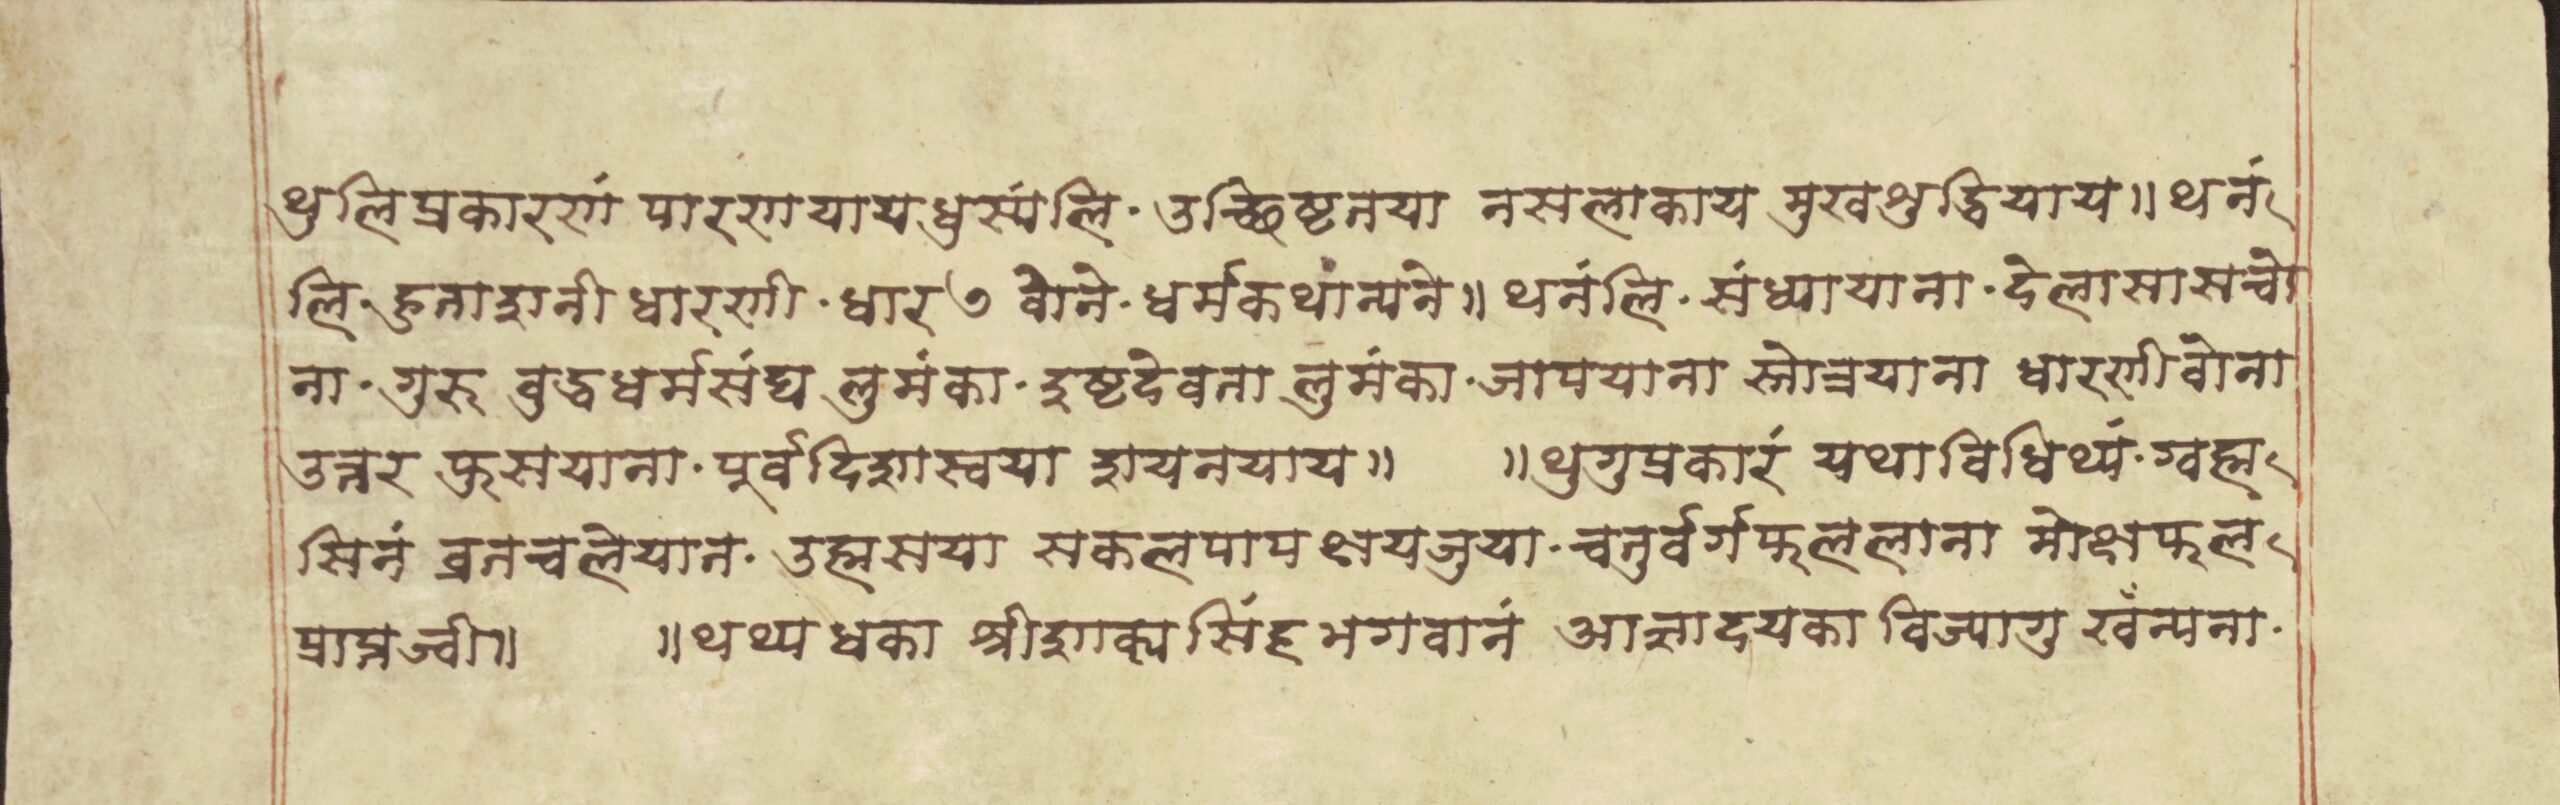 थुलिप्रकारणं पारणयायधुस्यंलि· उच्छिष्टनया नसलाकाय मुखशुद्धियाय॥थनं
लि· हुताशनी धारणी· धार७ वोने· धर्मकथांन्यने॥थनंलि· संध्यायाना· देलासासच्वो
ना· गुरु वुद्धधर्मसंघ लुमंका· इष्टदेवता लुमंका· जापयाना स्तोत्रयाना धारणीवोना
उत्तर फुसयाना· पूर्वदिशास्वया शयनयाय॥ ॥थुगुप्रकारं यथाविधिथ्यं· ग्वह्म
सिनं व्रतचलेयात· उह्मसया सकलपापक्षयजुया· चतुर्वर्गफललाना मोक्षफल
प्राप्तज्वी॥ ॥थथ्यधका श्रीशाक्यसिंहभगवानं आज्ञादयका विज्यागु खँन्यना·